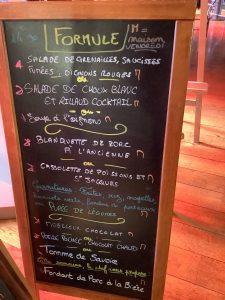 FORMULE
M = maison
VENDREDI
SALADE DE GRENAILLES, SAUCISSES
FUMÉES, OIGNONS ROUGES M
ou
SALADE DE CHOUX BLANC
ET RILLAUD COCKTAIL M
ou
Soupe à l'oignon M
BLANQUETTE DE PORC
À L'ANCIENNE M
ou
CASSOLETTE DE POISSONS ET
ST JACQUES M
Garnitures: frites, riz,
PURÉE DE LÉGUMES
MOELLEUX CHOCOLAT M
ou
POIRE POCHÉE CHOCOLAT CHAUD M
ou
Tomme de Savoie
Fondant de Porc à la Bière